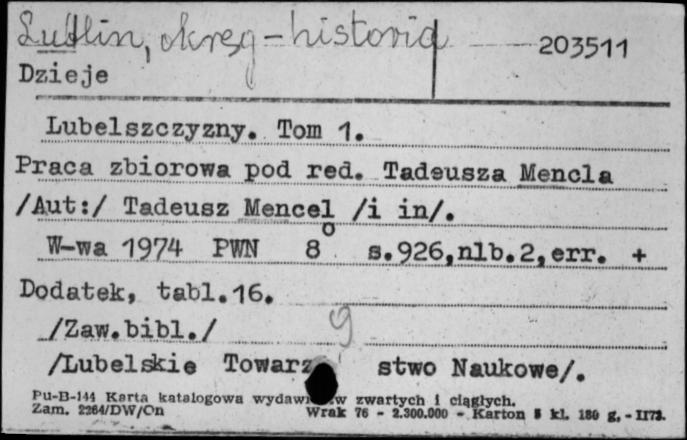 Lublin, okręg - historia 203511
Dzieje
Lubelszczyzny. Tom 1.
Praca zbiorowa pod red. Tadeusza Mencla
/Aut:/ Tadeusz Mencel /i in/.
W-wa 1974 PWN 8° s.926,nlb.2,err. +
Dodatek, tabl.16.
/Zaw.bibl./ 9
/Lubelskie Towarz stwo Naukowe/.
Pu-B-144 Karta katalogowa wydawn w zwartych i ciągłych.
Zam. 2264/DW/On Wrak 76 - 2.300.000 - Karton kl. 180 g. - II73.